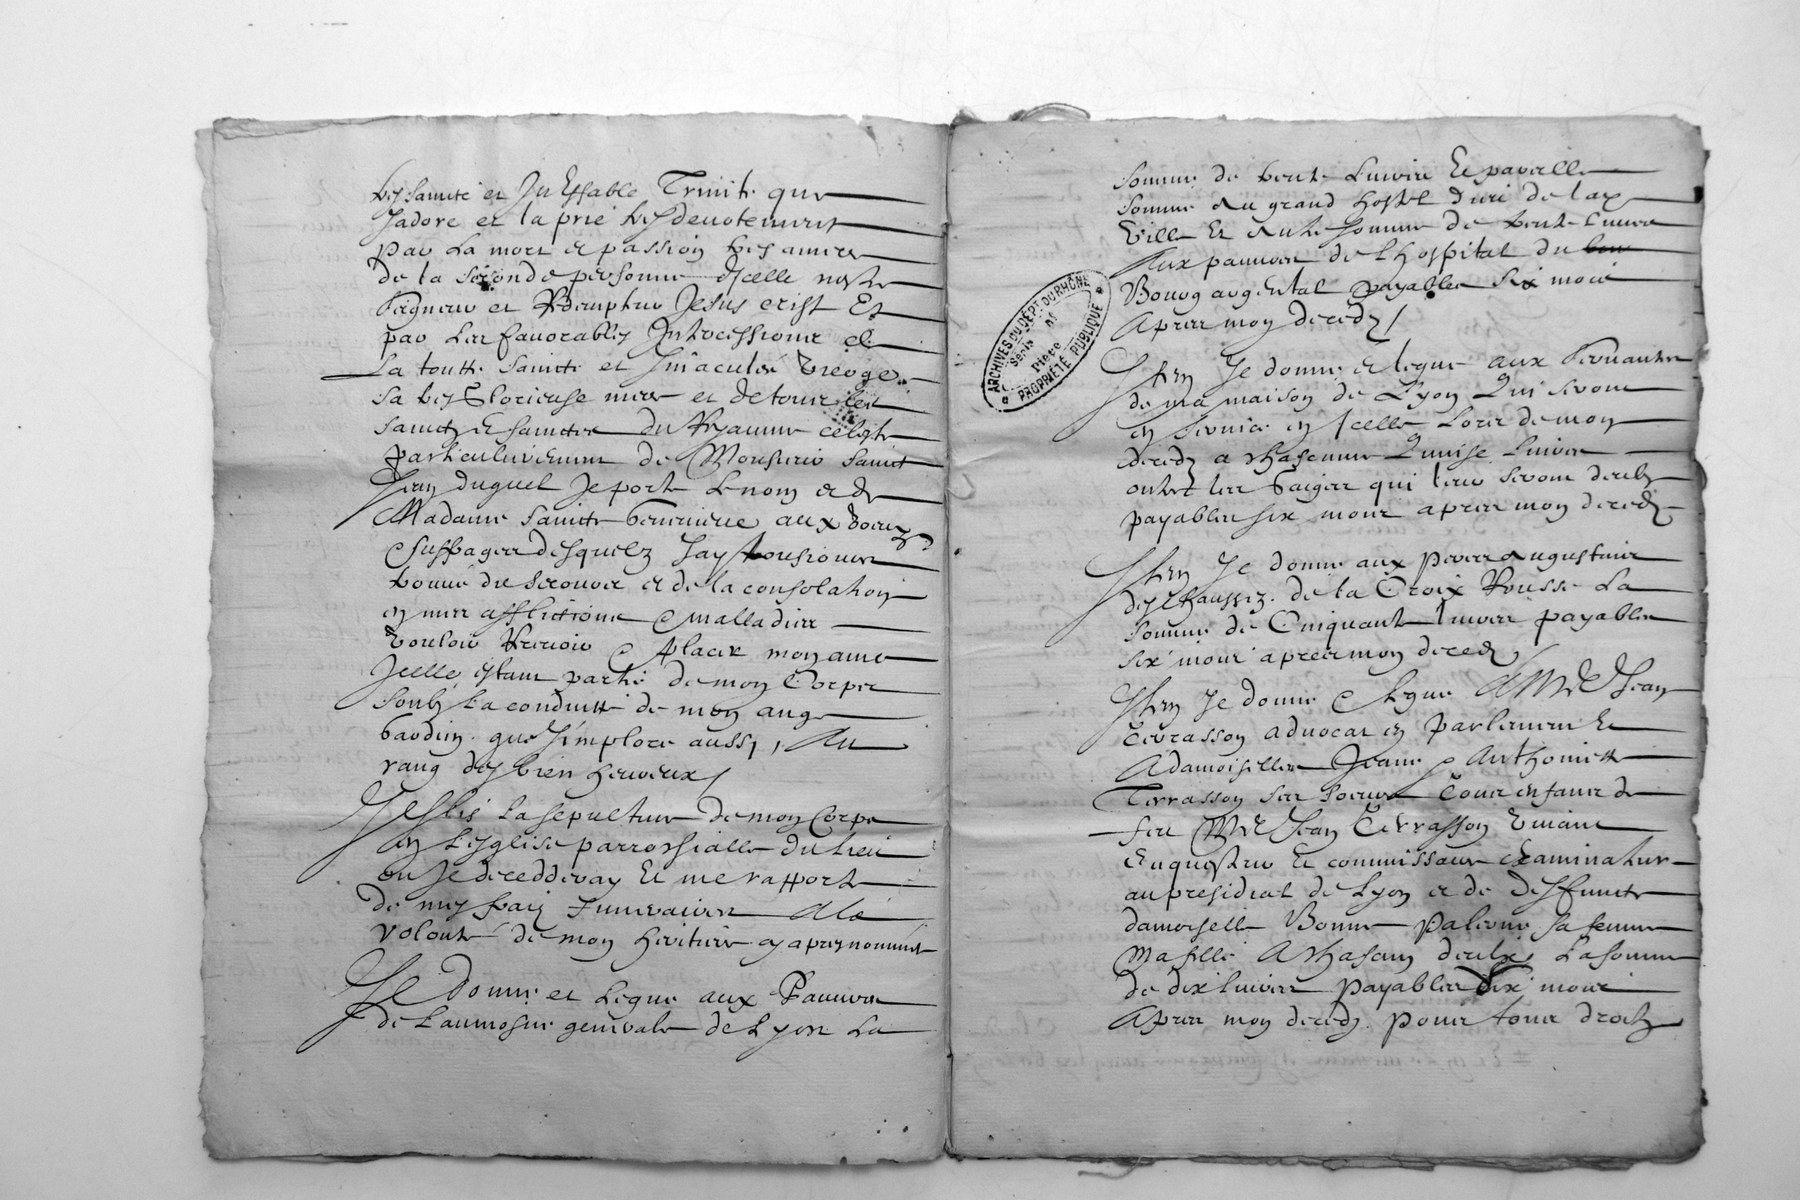 tres saincte et Ineffable Trinite que
Jadore et la prie tres devotement
par la mort et passion tres amere
de la seconde personne dicelle nostre
seigneur et Redempteur Jesus crist Et
par les favorables Intercessions de
La toutte saincte et Immaculée vierge
sa tres Glorieuse mere et de tous les
sainctz et sainctes du Royaume celeste
particulierement de Monsieur sainct
Jean duquel Je porte le nom et de
Madame saincte Genevieve aux voeuz
et suffrages desquelz Jay tousiours
trouué du secours et de la consolation
en mes afflictions et malladies
vouloir Recevoir et placer mon ame
Icelle estant partie de mon Corps
soubz La conduitte de mon ange
gardien que Jimplore aussy, Au
rang des bien heureux /
Jeslis La sepulture de mon Corps
en Lesglise parrossialle du lieu
ou Je decedderay Et me rapporte
de mes fraiz funeraires A la
volonte de mon heritiere cy apres nommée
Je donne et Legue aux Pauvres
de Laumosne generale de Lyon La
somme de trente Livres Et pareille
somme au grand hostel dieu de lad
ville Et autre somme de trente Livres
Aux pauvres de Lhospital du
Bourg argental payables six mois
Apres mon deceds /
Item Je donne et legue aux servantes
de ma maison de Lyon Qui seront
en service en Icelle Lors de mon
deceds a chascune Quinze Livres
outre les gaiges qui leur seront deubz
payables six mois apres mon deceds
Item Je donne aux peres Augustins
deschaussez de la Croix Rousse La
somme de Cinquante livres payables
six mois apres mon deceds
Item Je donne et Legue A Mre Jean
Terrasson advocat en parlement Et
A damoiselles Jeanne et Anthoinette
Terrasson ses soeurs Tous enfans de
feu Mre Jean Terrasson vivant
Enquesteur Et commissaire examinateur
au presidial de Lyon et de deffuncte
damoiselle Bonne Palerne sa femme
Ma fille A chascun deulx La somme
de dix livres payables six mois
Apres mon deceds pour tous droictz
ARCHIVES DU DÉPT DU RHÔNE
Série
Pièce
PROPRIÉTÉ PUBLIQUE